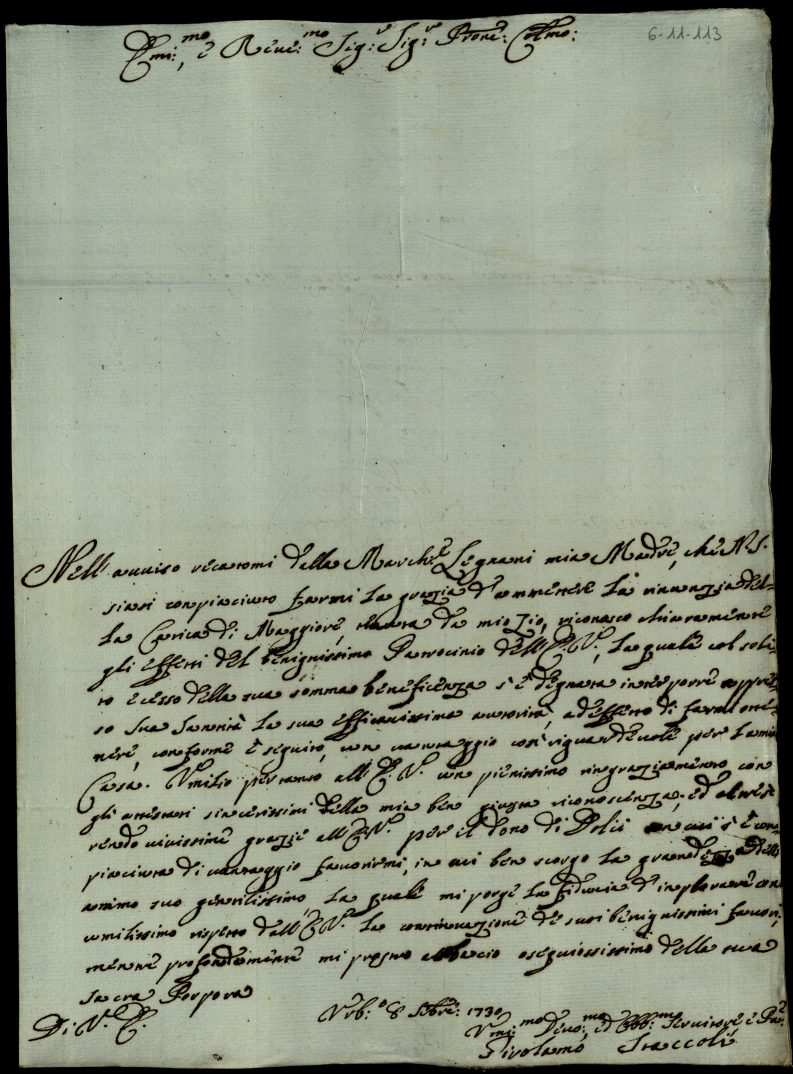 6-11-113
Emi:mo, e Reve:mo Sig:r Sig:r Prone: Colmo:
Nell'avviso recatomi della March:e Legnani mia Madre, che N.S.
siasi compiaciuto farmi la grazia d'ammettere la rinunzia del-
la Carica di Maggiore, da mio Zio, riconosco chiaramente
gli effetti del benignissimo Patrocinio dell'E.V., la quale col soli-
to ecesso della sua somma beneficenza s'è degnata interporre appres-
so Sua Santità la sua efficacissima autorità, ad effetto di farmi otte-
nere, conforme è seguito, un vantaggio così riguardevole per la mia
Casa. Umilio pertanto all'E.V. un pienissimo ringraziamento con
gli attestati sincerissimi della mia ben giusta riconoscenza, ed altresì
rendo vivissime grazie all'E.V. per il dono di Dolci con cui s'è com-
piaciuta di vantaggio favorirmi, in cui ben scorgo la grandezza dell'
animo suo gentilissimo la quale mi porge la fiducia d'implorare con
umilissimo rispetto dall'E.V. la continuazione de suoi benignissimi favori,
mentre profondamente mi prostro al bacio ossequiosissimo della sua
Sacra Porpora
Di V. E.
Urb:o 8 Sbre: 1730
Umi:mo Devo:mo ed Obb:mo Servitore e Par:e
Girolamo Staccoli